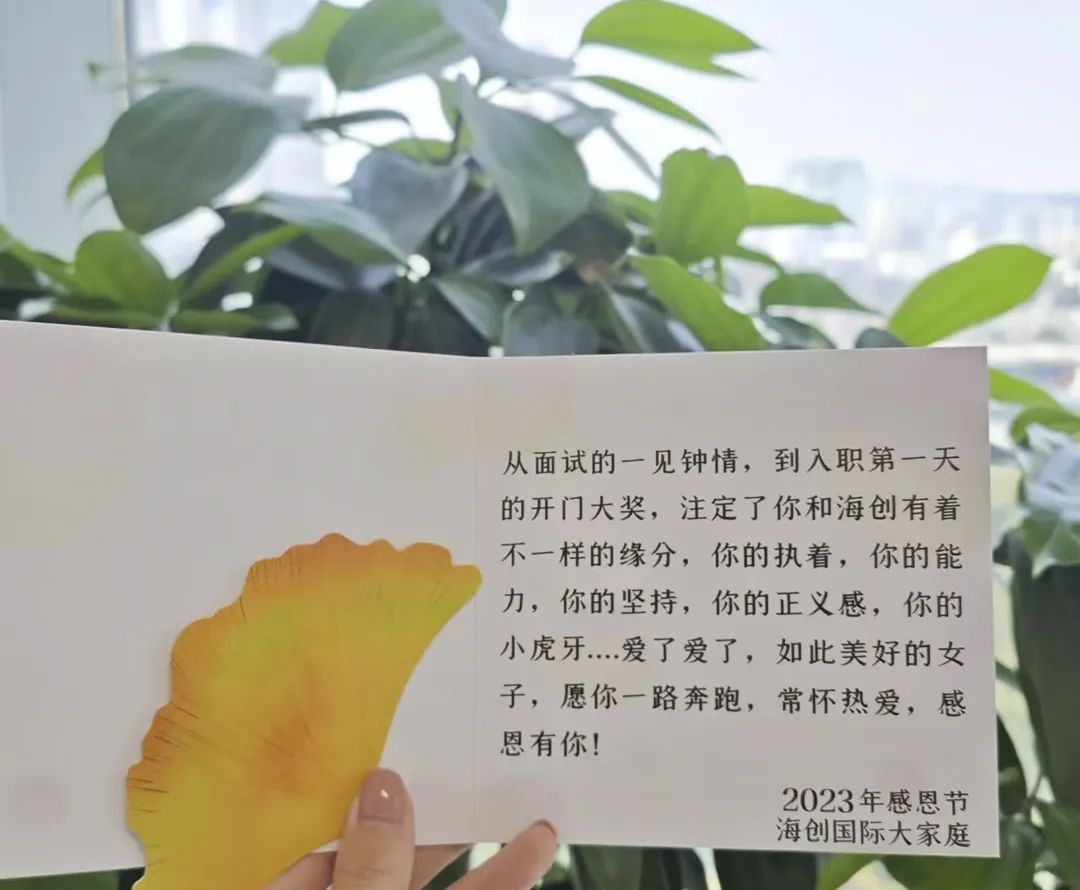 从面试的一见钟情，到入职第一天
的开门大奖，注定了你和海创有着
不一样的缘分，你的执着，你的能
力，你的坚持，你的正义感，你的
小虎牙....爱了爱了，如此美好的女
子，愿你一路奔跑，常怀热爱，感
恩有你！
2023年感恩节
海创国际大家庭